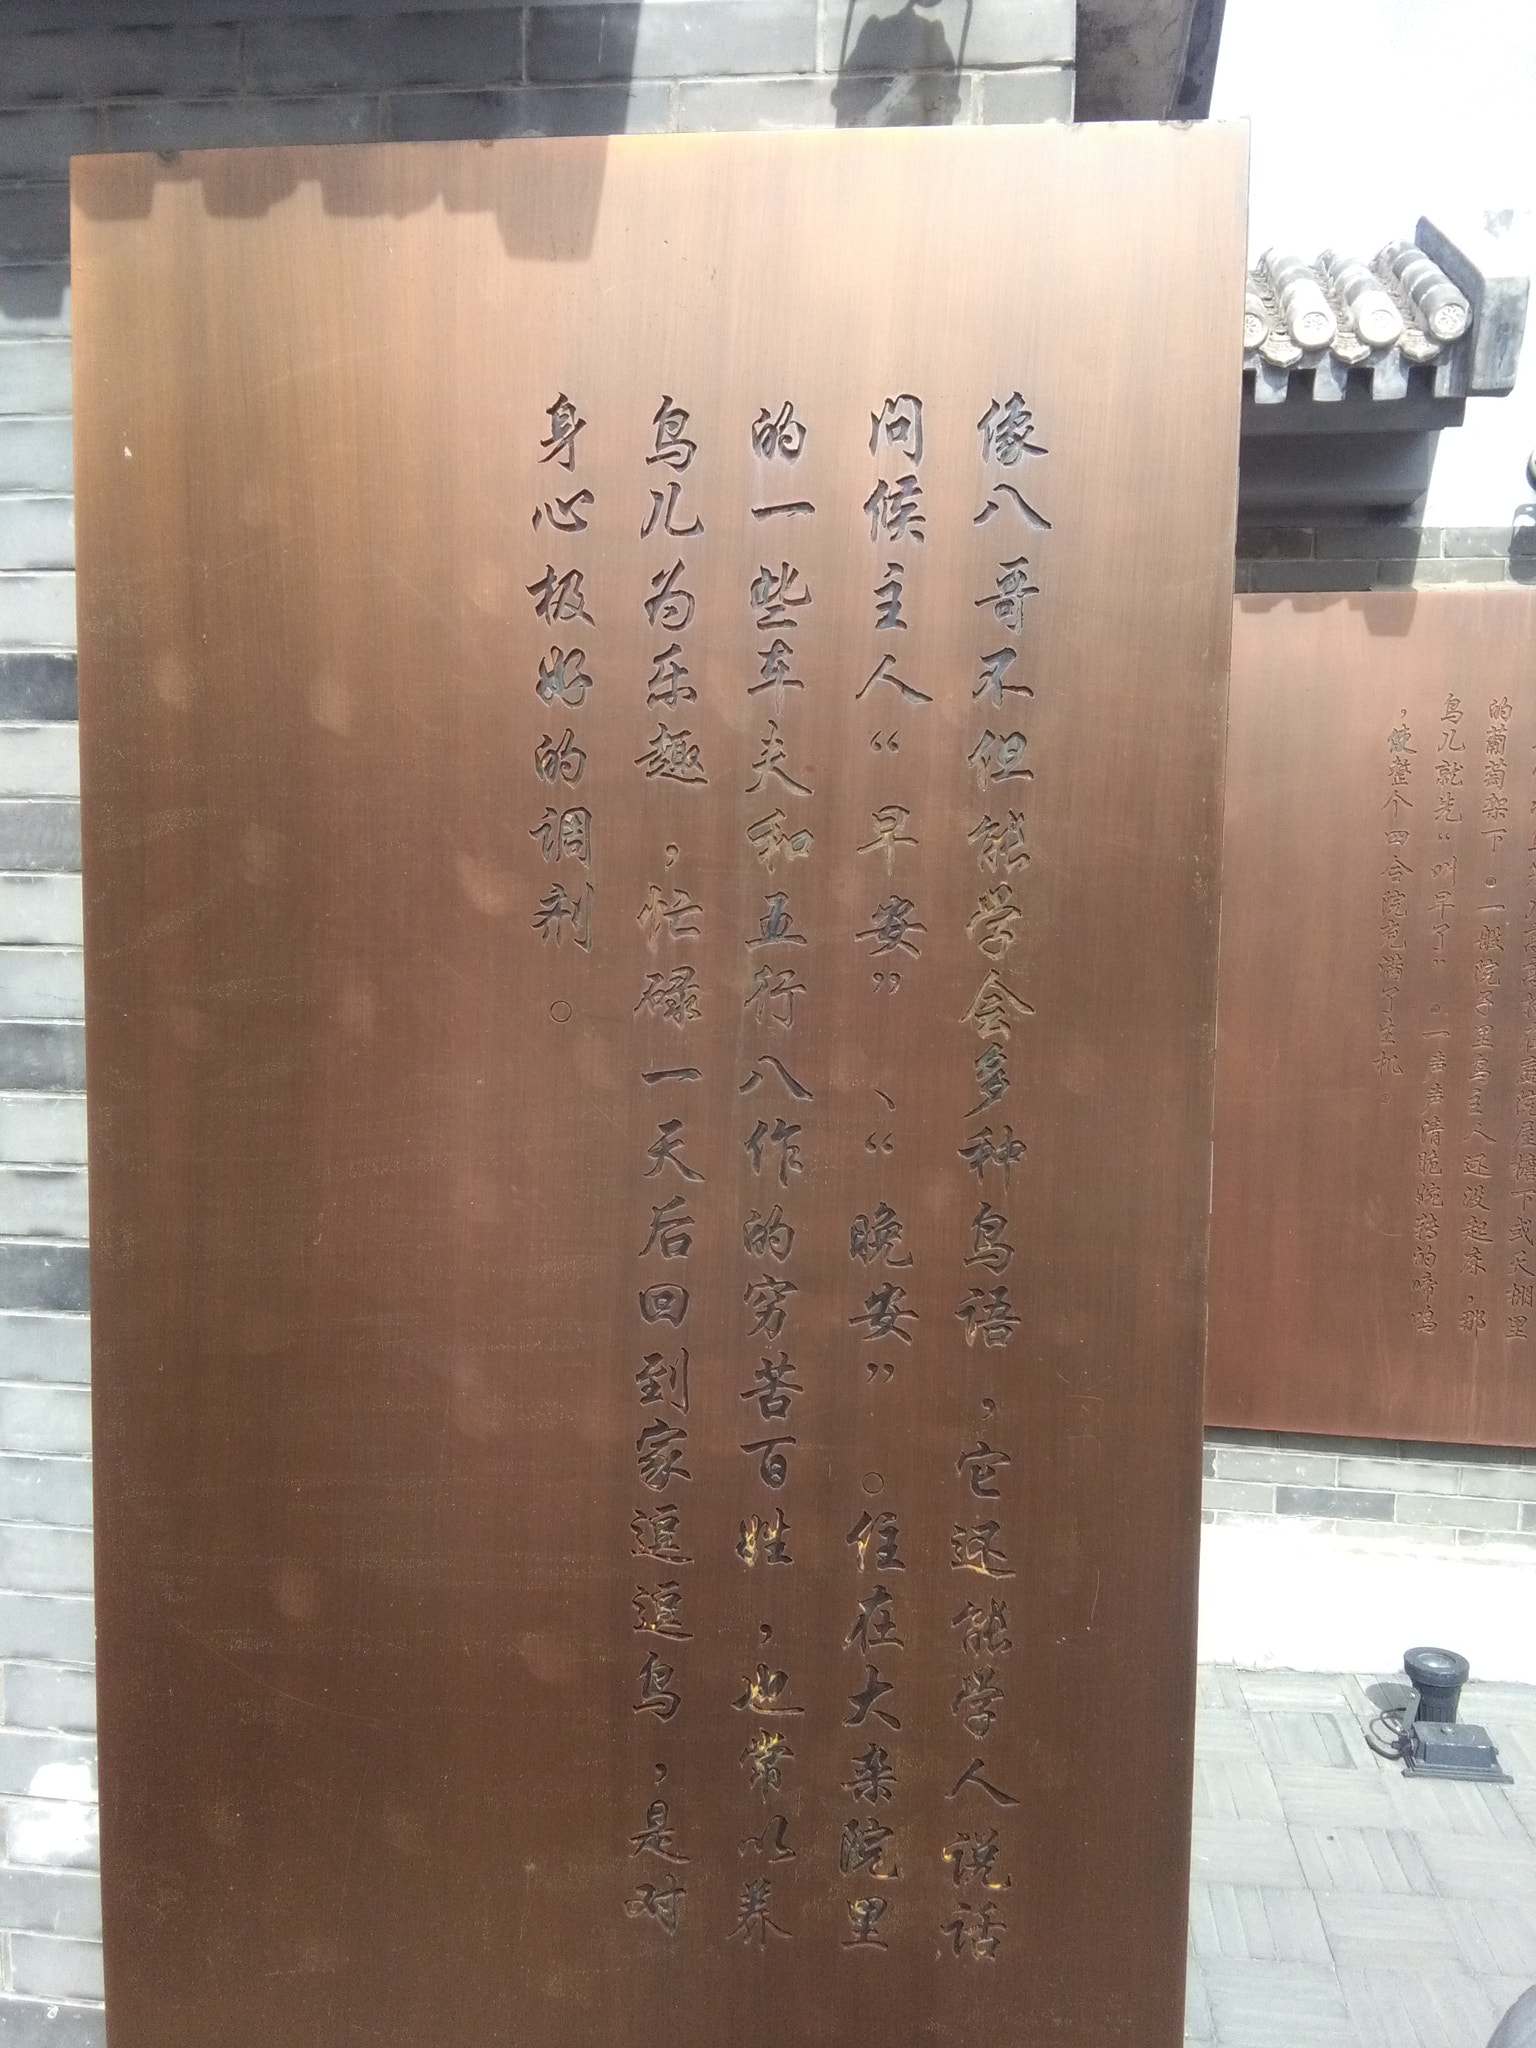 像八哥不但能学会多种鸟语，它还能学人说话
问候主人“早安”、“晚安”。住在大杂院里
的一些车夫和五行八作的穷苦百姓，也常以养
鸟儿为乐趣，忙碌一天后回到家逗逗鸟，是对
身心极好的调剂。
的葡萄架下。一般院子里鸟主人还没起床，那
鸟儿就先“叫早了”。一声声清脆婉转的啼鸣
，使整个四合院充满了生机。